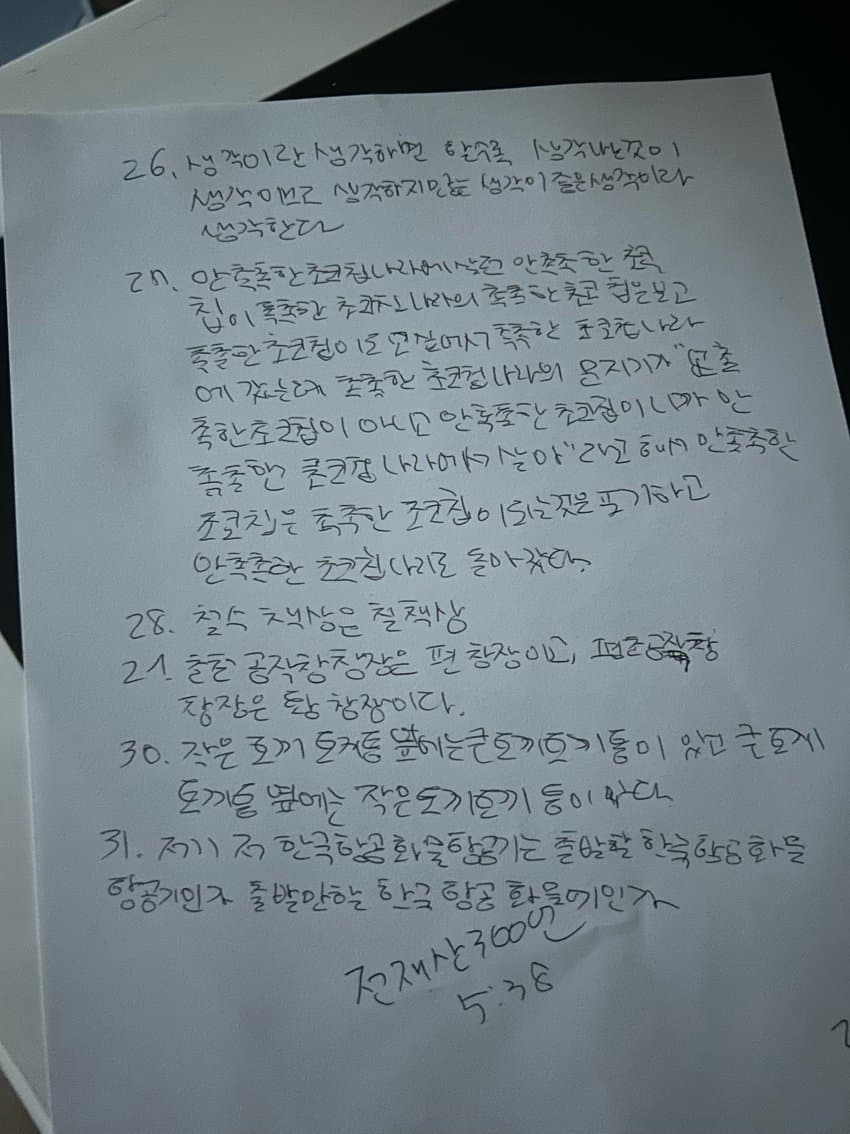 26. 생각이란 생각하면 할수록 생각나는것이
생각이므로 생각하지말는 생각이 좋은생각이라
생각한다
27. 안촉촉한초코칩나라에살던 안촉촉한 초코
칩이 촉촉한 초코칩나라의 촉촉한 초코칩을보고
촉촉한초코칩이되고싶어서 촉촉한 초코칩나라
에 갔는데 촉촉한 초코칩나라의 문지기가 "넌촉
촉한초코칩이 아니고 안촉촉한 초코칩이니까 안
촉촉한 초코칩나라에가살아"라고해서 안촉촉한
초코칩은 촉촉한 초코칩이되는것을 포기하고
안촉촉한 초코칩나라로 돌아갔다.
28. 철수 책상은 철책상
29. 공작창창장은 편 창장이고,
창장은 황 창장이다.
30. 작은 토끼 토끼통 옆에는큰토끼토끼통이 있고 큰토끼
토끼통 옆에는 작은토끼토끼 통이 있다
31. 저기 저 한국항공화물항공기는 출발할 한국항공화물
항공기인가 출발안하는 한국 항공 화물기인가
전재산300원
5:38
2